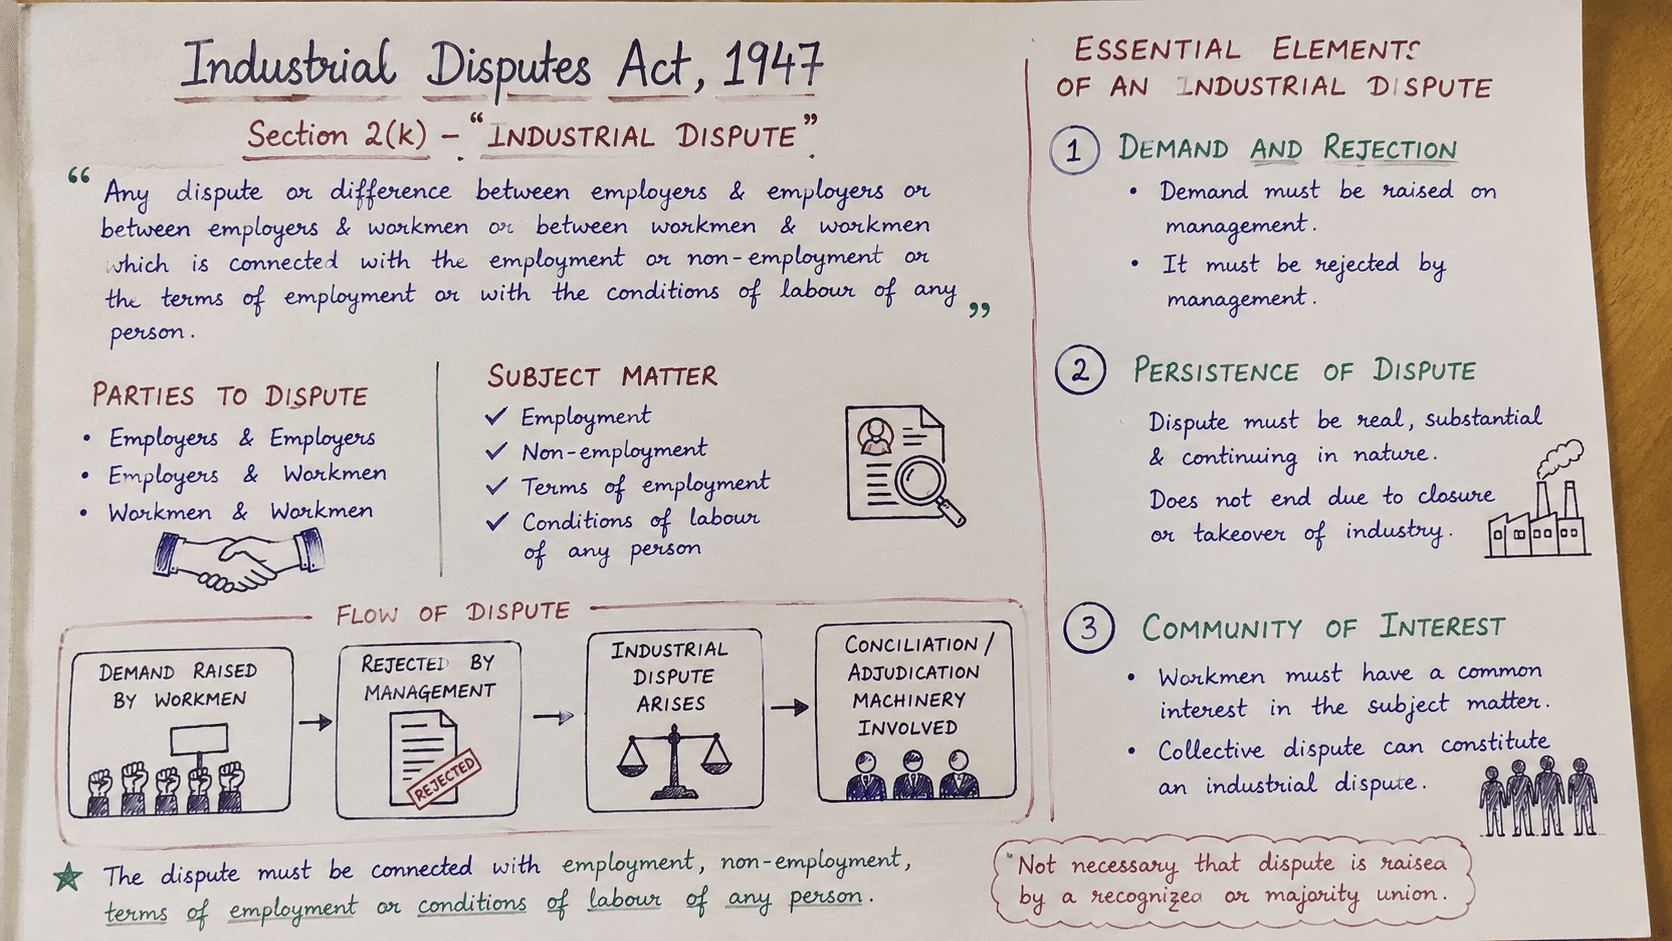 Industrial Disputes Act, 1947
Section 2(k) – "INDUSTRIAL DISPUTE"
"Any dispute or difference between employers & employers or
between employers & workmen or between workmen & workmen
which is connected with the employment or non-employment or
the terms of employment or with the conditions of labour of any
person."
PARTIES TO DISPUTE
• Employers & Employers
• Employers & Workmen
• Workmen & Workmen
SUBJECT MATTER
✓ Employment
✓ Non-employment
✓ Terms of employment
✓ Conditions of labour
of any person
FLOW OF DISPUTE
DEMAND RAISED
BY WORKMEN
REJECTED BY
MANAGEMENT
REJECTED
INDUSTRIAL
DISPUTE
ARISES
CONCILIATION /
ADJUDICATION
MACHINERY
INVOLVED
★ The dispute must be connected with employment, non-employment,
terms of employment or conditions of labour of any person.
ESSENTIAL ELEMENTS
OF AN INDUSTRIAL DISPUTE
1 DEMAND AND REJECTION
• Demand must be raised on
management.
• It must be rejected by
management.
2 PERSISTENCE OF DISPUTE
Dispute must be real, substantial
& continuing in nature.
Does not end due to closure
or takeover of industry.
3 COMMUNITY OF INTEREST
• Workmen must have a common
interest in the subject matter.
• Collective dispute can constitute
an industrial dispute.
"Not necessary that dispute is raised
by a recognized or majority union.